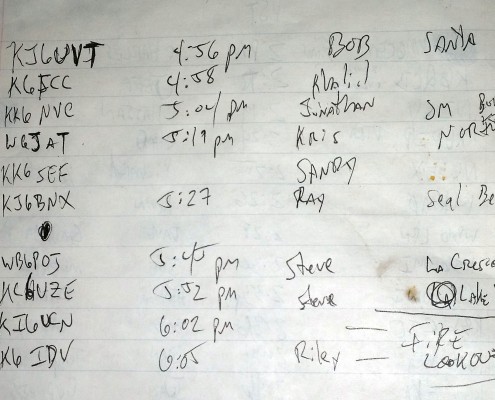 KJ6UVT 4:56 pm BOB SANTA
K6FCC 4:58 Khalid
KK6NVC 5:04 pm Jonathan SM
W6JAT 5:19 pm KRIS
KK6SEF SANDY
KJ6BNX 5:27 RAY Seal Be
WB6POJ 5:45 pm Steve La Cresc
KC6UZE 5:52 pm Steve LAKE
KI6UCN 6:02 pm — FIRE
K6IDV 6:05 Riley — LOOKOU